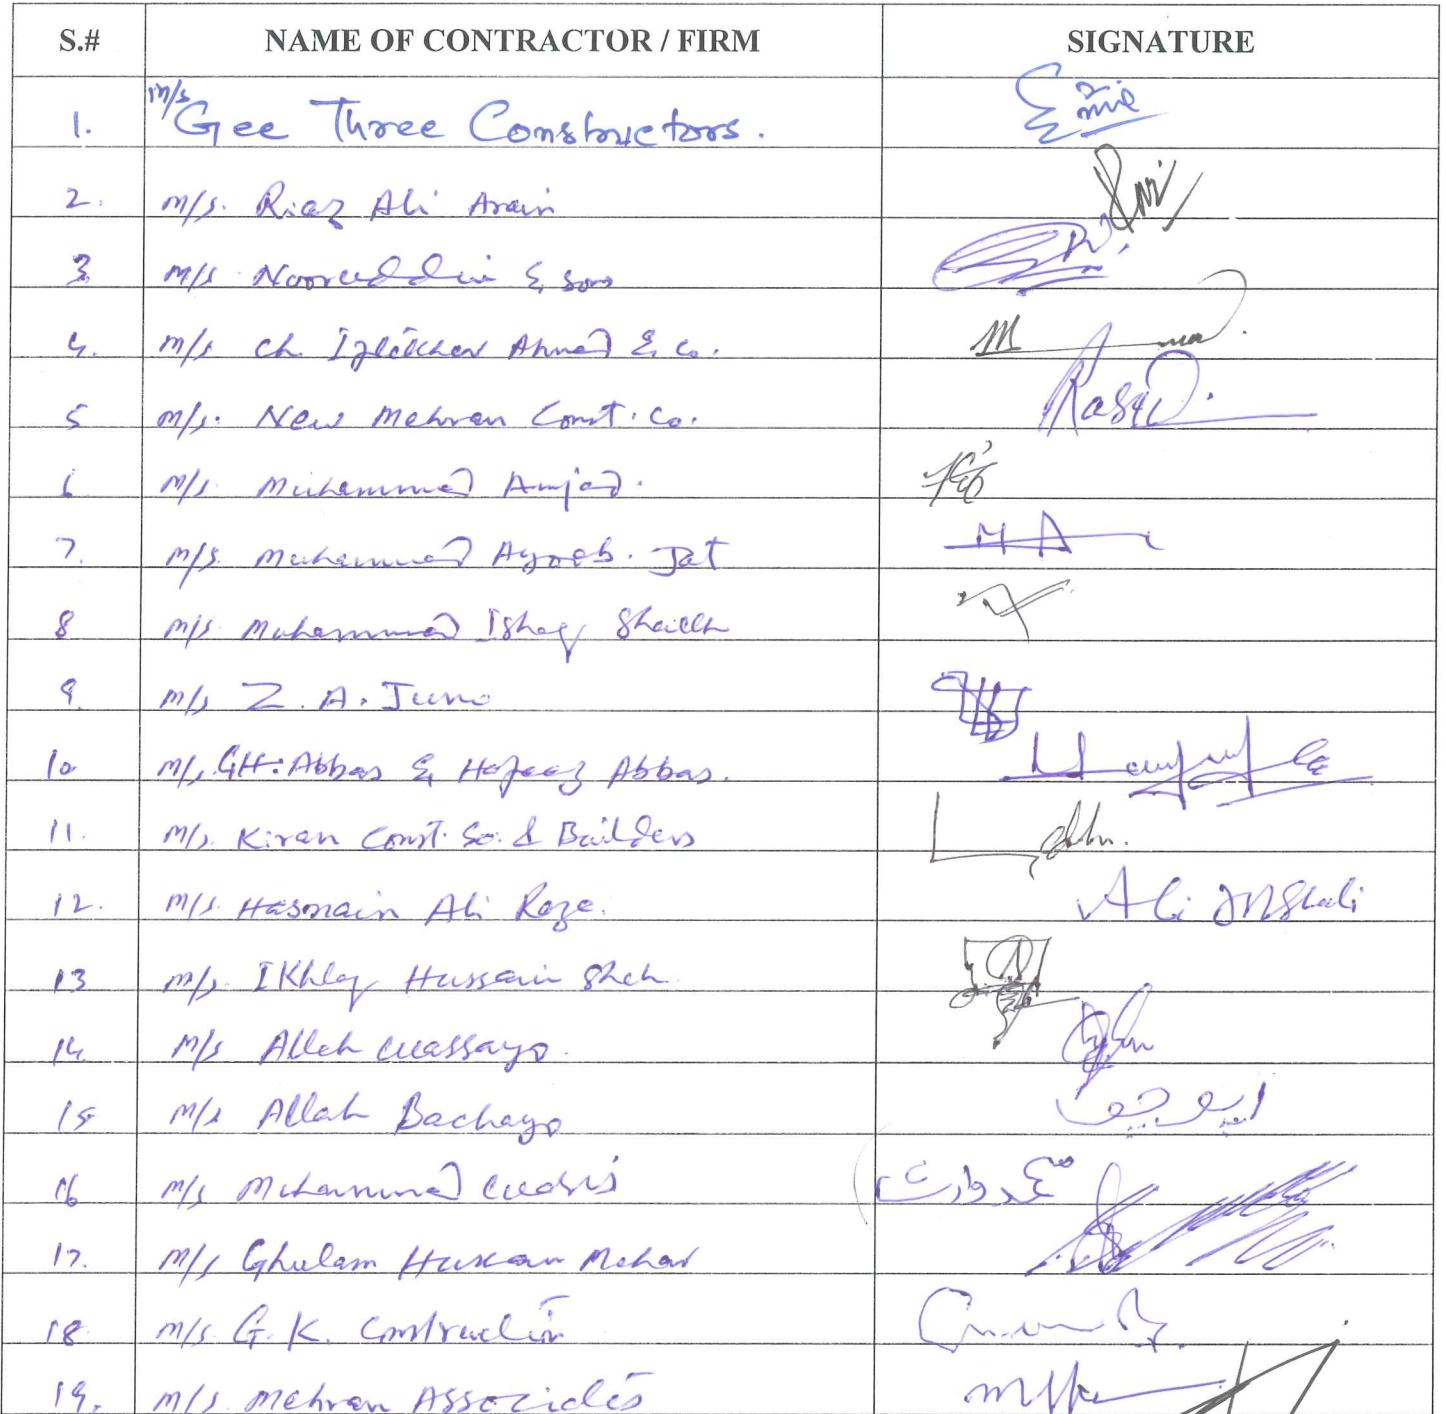 S.# NAME OF CONTRACTOR / FIRM SIGNATURE
1. M/s Gee Three Constructors.
2. M/s. Riaz Ali Arain
3 M/s Nooruddin & Sons
4. M/s Ch. Iftikhar Ahmed & Co.
5 M/s. New Mehran Const. Co. Rasid
6 M/s. Muhammad Amjad.
7. M/s. Muhammad Ayoob. Jat MA
8 M/s. Muhammad Ishaq Shaikh
9. M/s Z. A. Juno
10 M/s. GH: Abbas & Hafeez Abbas.
11. M/s. Kiran Const. Co. & Builders
12. M/s. Hasnain Ali Raza. Ali
13 M/s. IKhlaq Hussain Shah
14 M/s Allah Wassayo.
15 M/s Allah Bachayo
16 M/s Muhammad Waris محمد وارث
17. M/s Ghulam Hussain Mahar
18 M/s. G. K. Construction
19. M/s. Mehran Associates